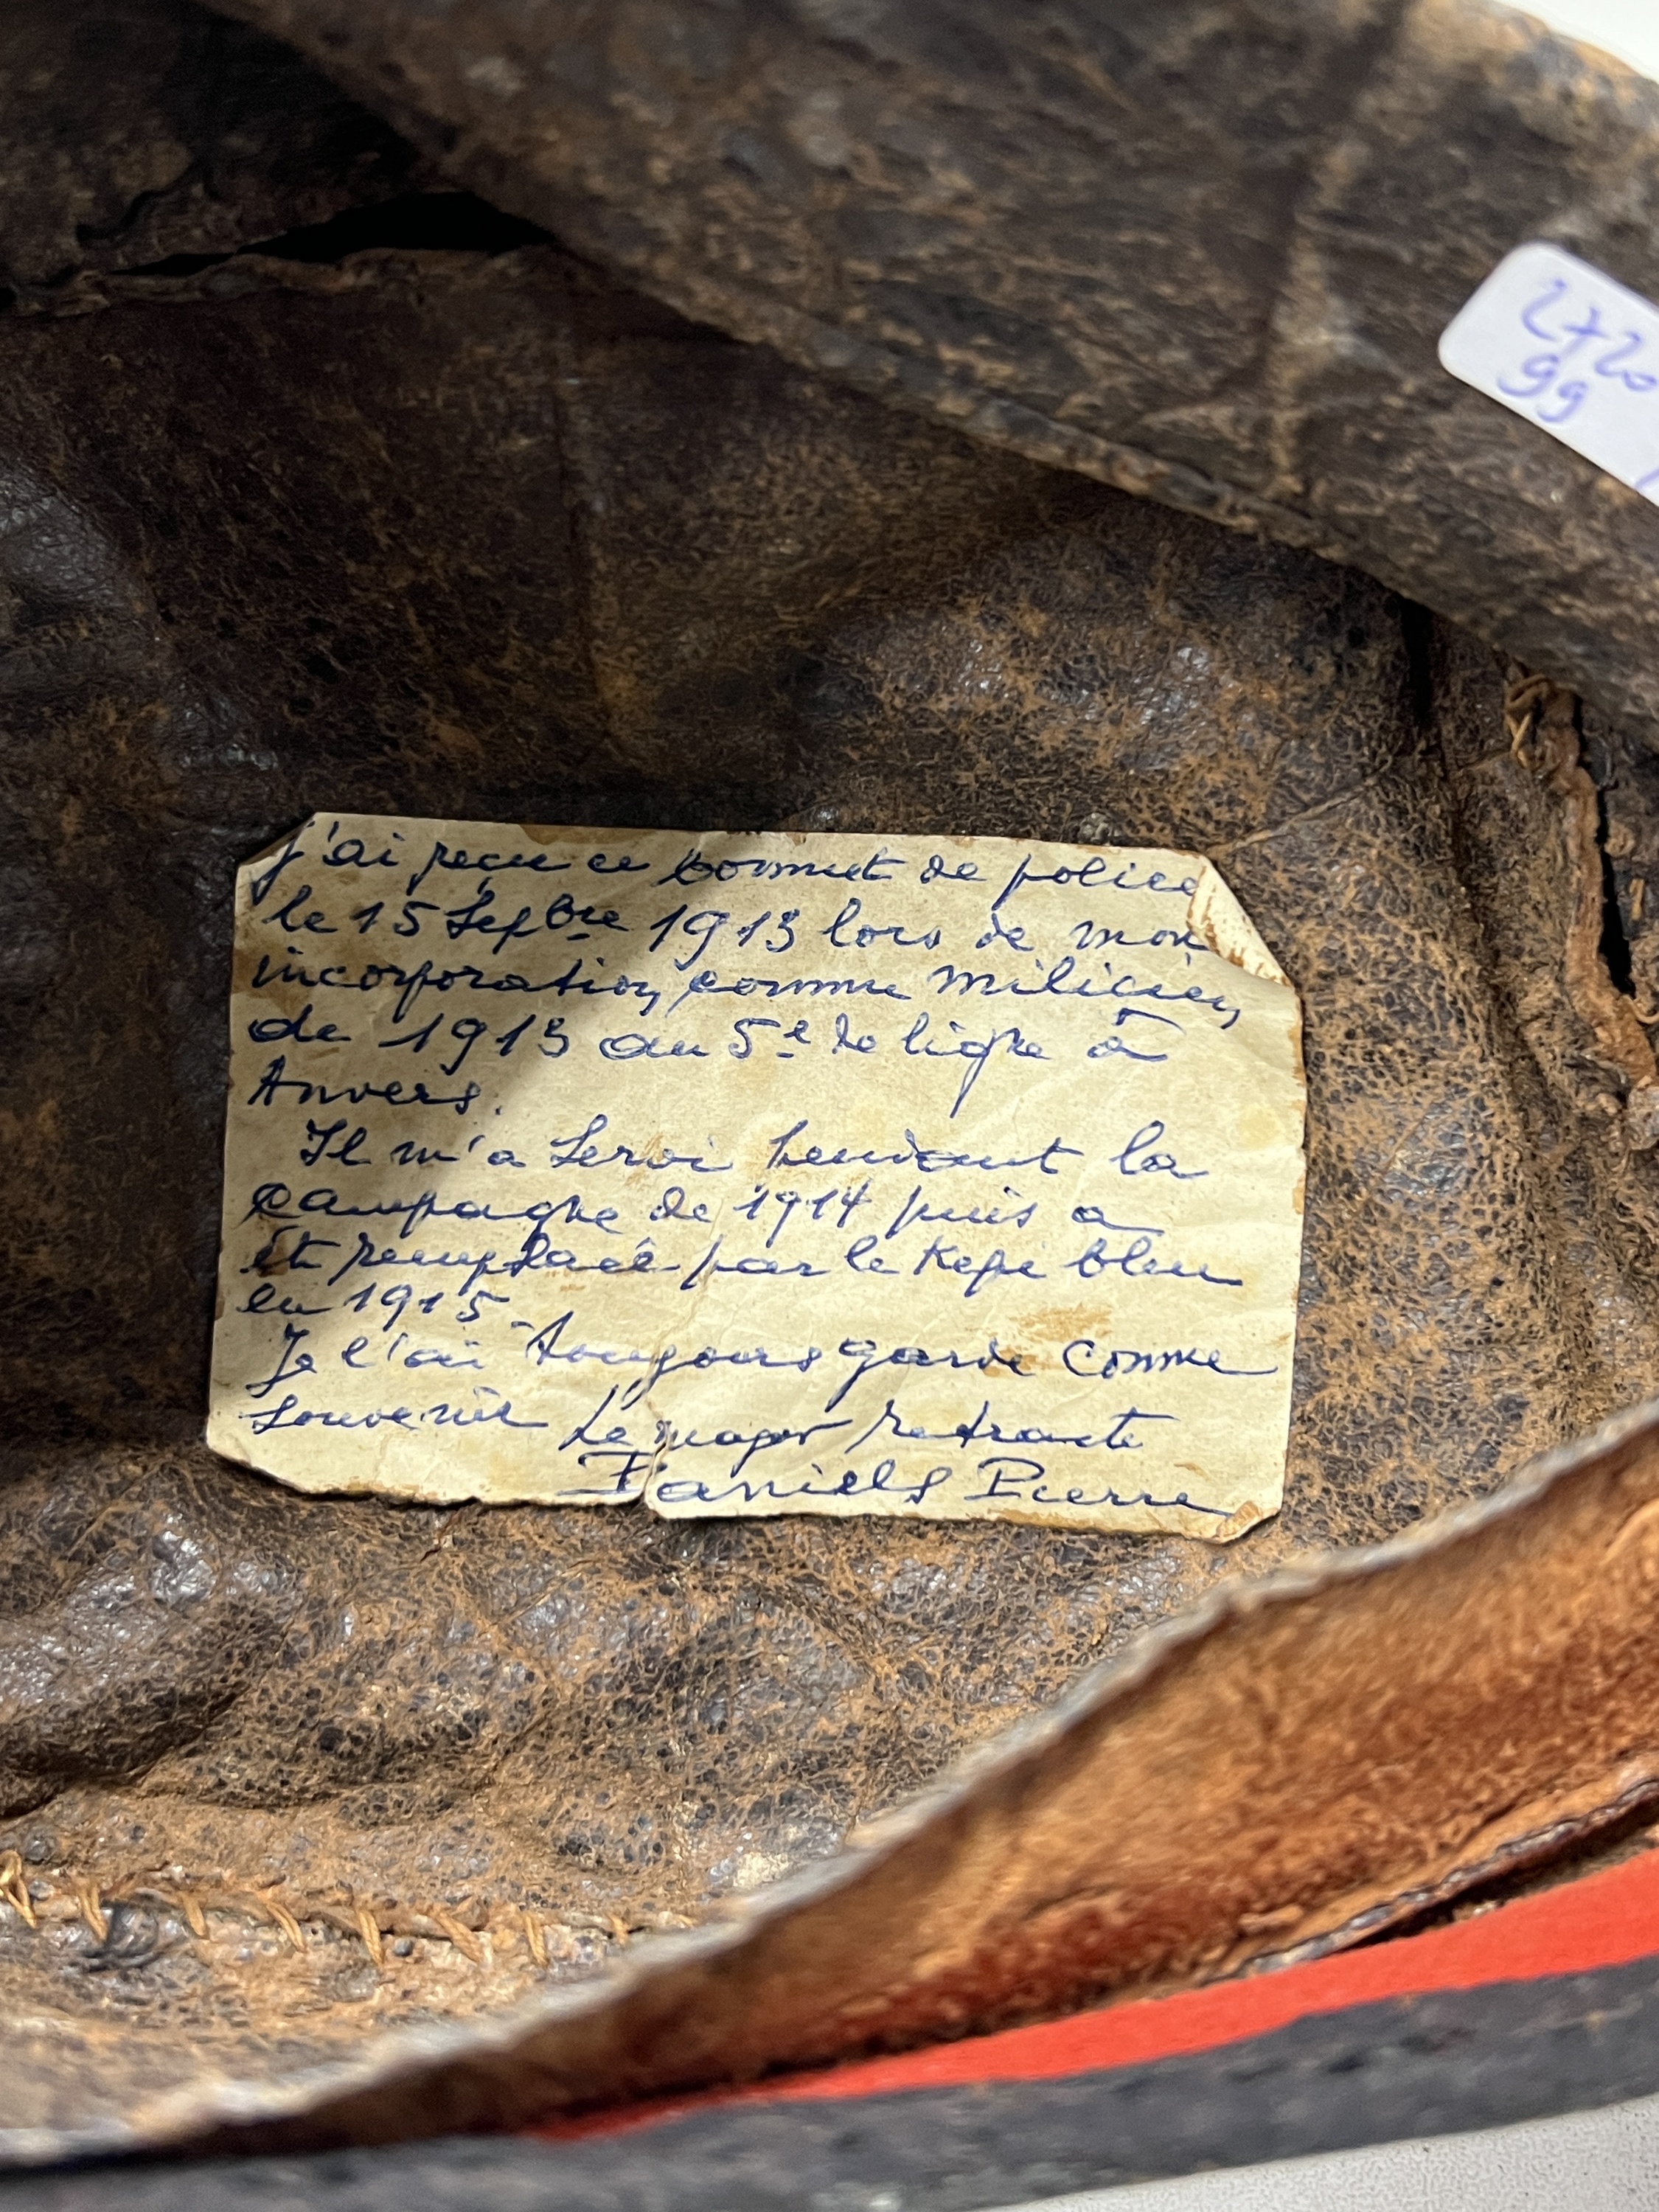 2720
99
j'ai reçu ce bonnet de police
le 15 Sepbre 1913 lors de mon
incorporation, comme milicien,
de 1913 au 5e de ligne à
Anvers.
Il m'a servi pendant la
campagne de 1914 puis a
été remplacé par le Kepi bleu
en 1915.
Je l'ai toujours garde comme
souvenir Le major retraite
Daniels Pierre